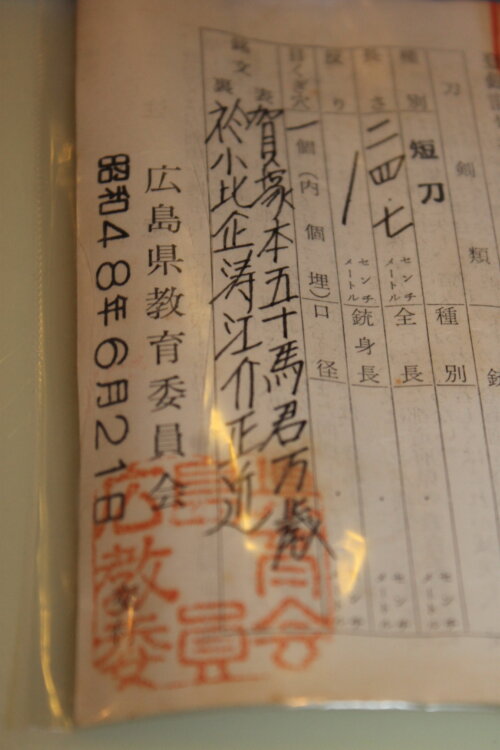 刀剣類
種別
短刀
種別
長さ
二四・七
センチメートル
全長
センチメートル
反り
センチメートル
銃身長
目くぎ穴
一個(内個埋)
口径
銘文
表
賀塚本五十馬君万歳
裏
於小比企涛江介正近
広島県教育委員会
昭和48年6月21日